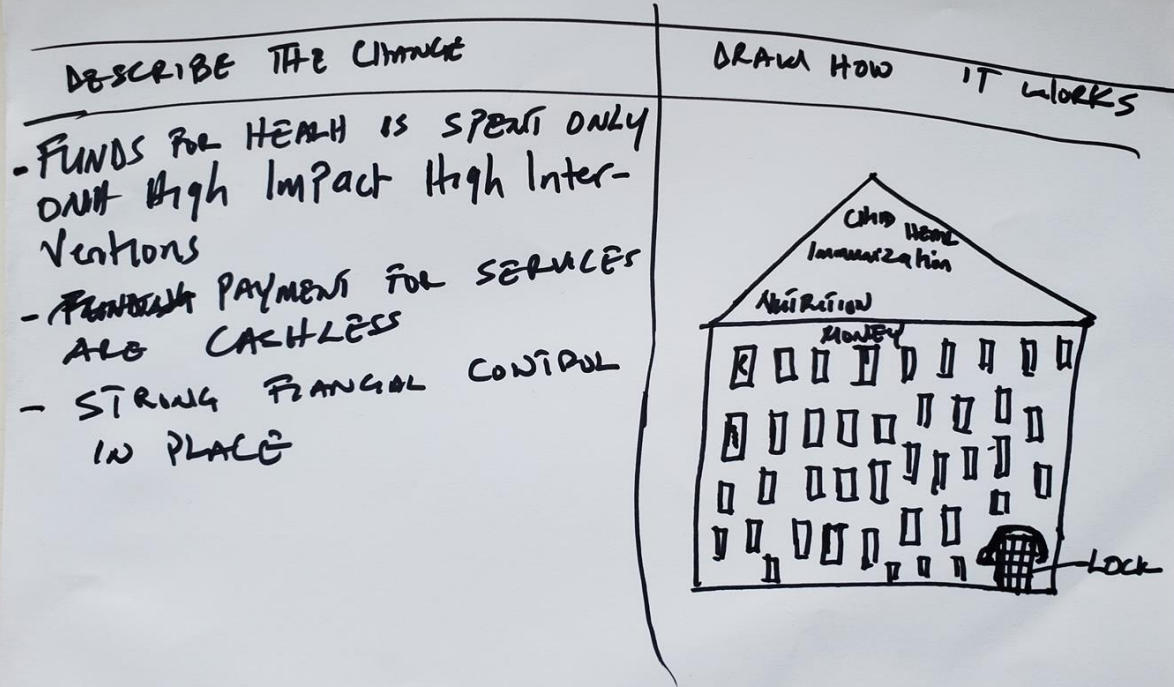 DESCRIBE THE CHANGE
- FUNDS FOR HEALH IS SPENT ONLY
ONH High Impact High Inter-
Ventions
- PAYMENT FOR SERVICES
ARE CASHLESS
- STRONG FIANGAL CONTROL
IN PLACE
DRAW HOW IT WORKS
CHID HEAL
Immunization
NUTRITION
MONEY
LOCK